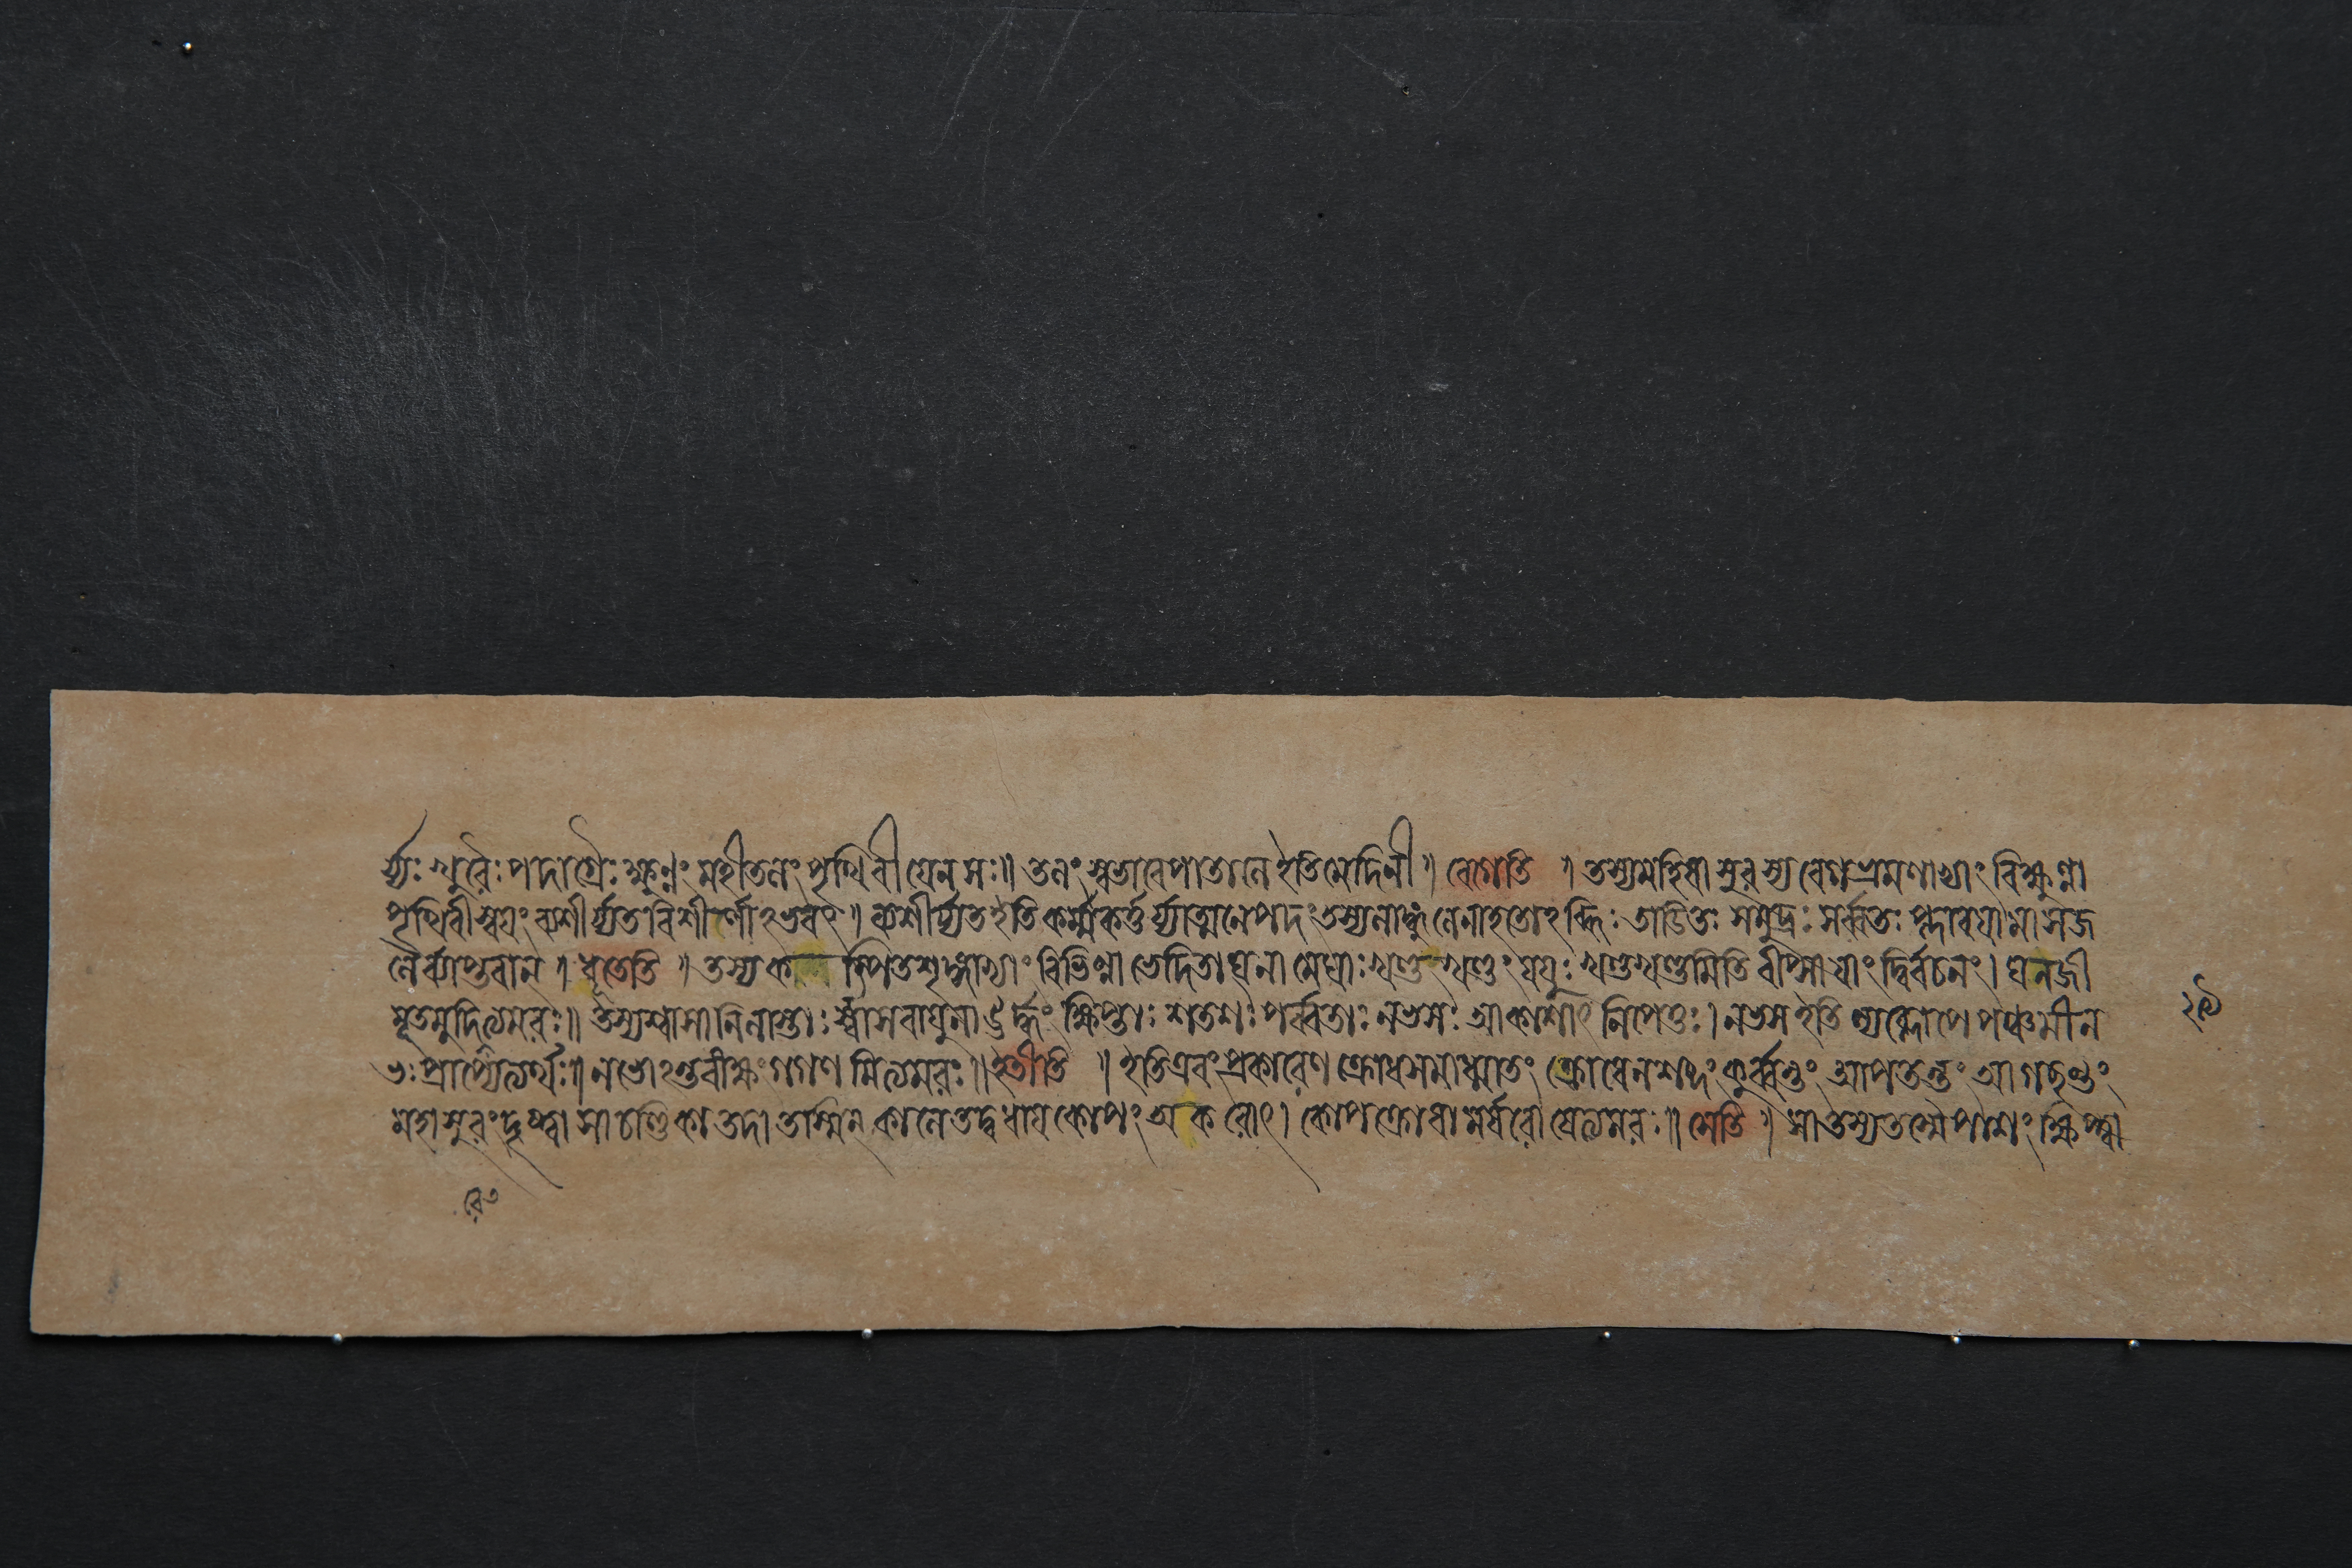 র্য্যঃ খুরৈঃ পদাগ্রৈঃ ক্ষুণ্ণং মহীতলং পৃথিবী যেন সঃ॥ তলং স্বভাবেপাতালে ইতি মেদিনী॥ বেগেতি ॥ তস্য মহিষাসুরস্য বেগভ্রমণাভ্যাং বিক্ষুণ্ণা
পৃথিবী স্বয়ং ব্যশীর্য্যত বিশীর্ণাঽভবৎ॥ ব্যশীর্য্যত ইতি কর্ম্মকর্ত্তর্য্যাত্মনেপদং তস্য লাঙ্গুলেনাহতোঽব্ধিঃ তাডিতঃ সমুদ্রঃ সর্ব্বতঃ প্লাবয়ামাস জ
লৈর্ব্যাপ্তবান্ । ধুতেতি ॥ তস্য ক ম্পিতশৃঙ্গাভ্যাং বিভিন্না ভেদিতা ঘনা মেঘাঃ খণ্ডং খণ্ডং যযুঃ খণ্ডখণ্ডমিতি বীপ্সায়াং দ্বির্বচনং। ঘনজী
মূতমুদিত্যমরঃ॥ তস্য শ্বাসানিলাস্তাঃ শ্বাসবায়ুনা ঊর্দ্ধং ক্ষিপ্তাঃ শতশঃ পর্ব্বতাঃ নভসঃ আকাশাৎ নিপেতুঃ। নভস ইতি ল্যব্লোপে পঞ্চমী ন
ভঃ প্রাপ্যেত্যর্থঃ॥ নভোঽন্তরীক্ষং গগণমিত্যমরঃ॥ ইতীতি ॥ ইতি এবং প্রকারেণ ক্রোধসমাধ্মাতং ক্রোধেন শব্দং কুর্ব্বন্তং আপতন্তং আগচ্ছন্তং
মহাসুরং দৃষ্ট্বা সা চণ্ডিকা তদা তস্মিন্ কালে তদ্বধায় কোপং অকরোৎ। কোপক্রোধামর্ষরোষেত্যমরঃ॥ সেতি ॥ সা তস্য তস্মৈ পাশং ক্ষিপ্ত্বা
২৯
রে ৩